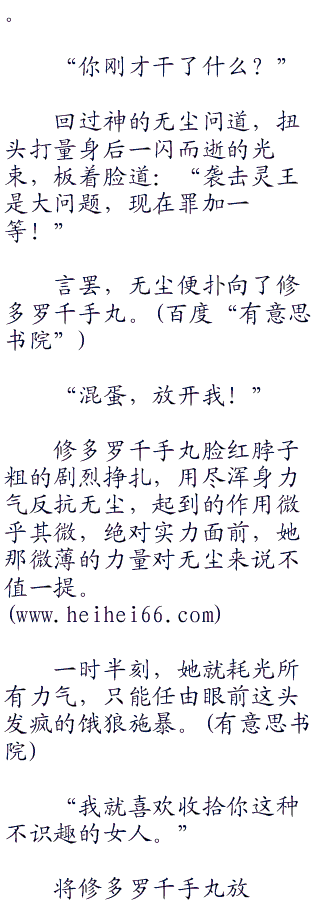 。
“你刚才干了什么？”
回过神的无尘问道，扭
头打量身后一闪而逝的光
束，板着脸道：“袭击灵王
是大问题，现在罪加一
等！”
言罢，无尘便扑向了修
多罗千手丸。(百度“有意思
书院”)
“混蛋，放开我！”
修多罗千手丸脸红脖子
粗的剧烈挣扎，用尽浑身力
气反抗无尘，起到的作用微
乎其微，绝对实力面前，她
那微薄的力量对无尘来说不
值一提。
(www.heihei66.com)
一时半刻，她就耗光所
有力气，只能任由眼前这头
发疯的饿狼施暴。(有意思书
院)
“我就喜欢收拾你这种
不识趣的女人。”
将修多罗千手丸放